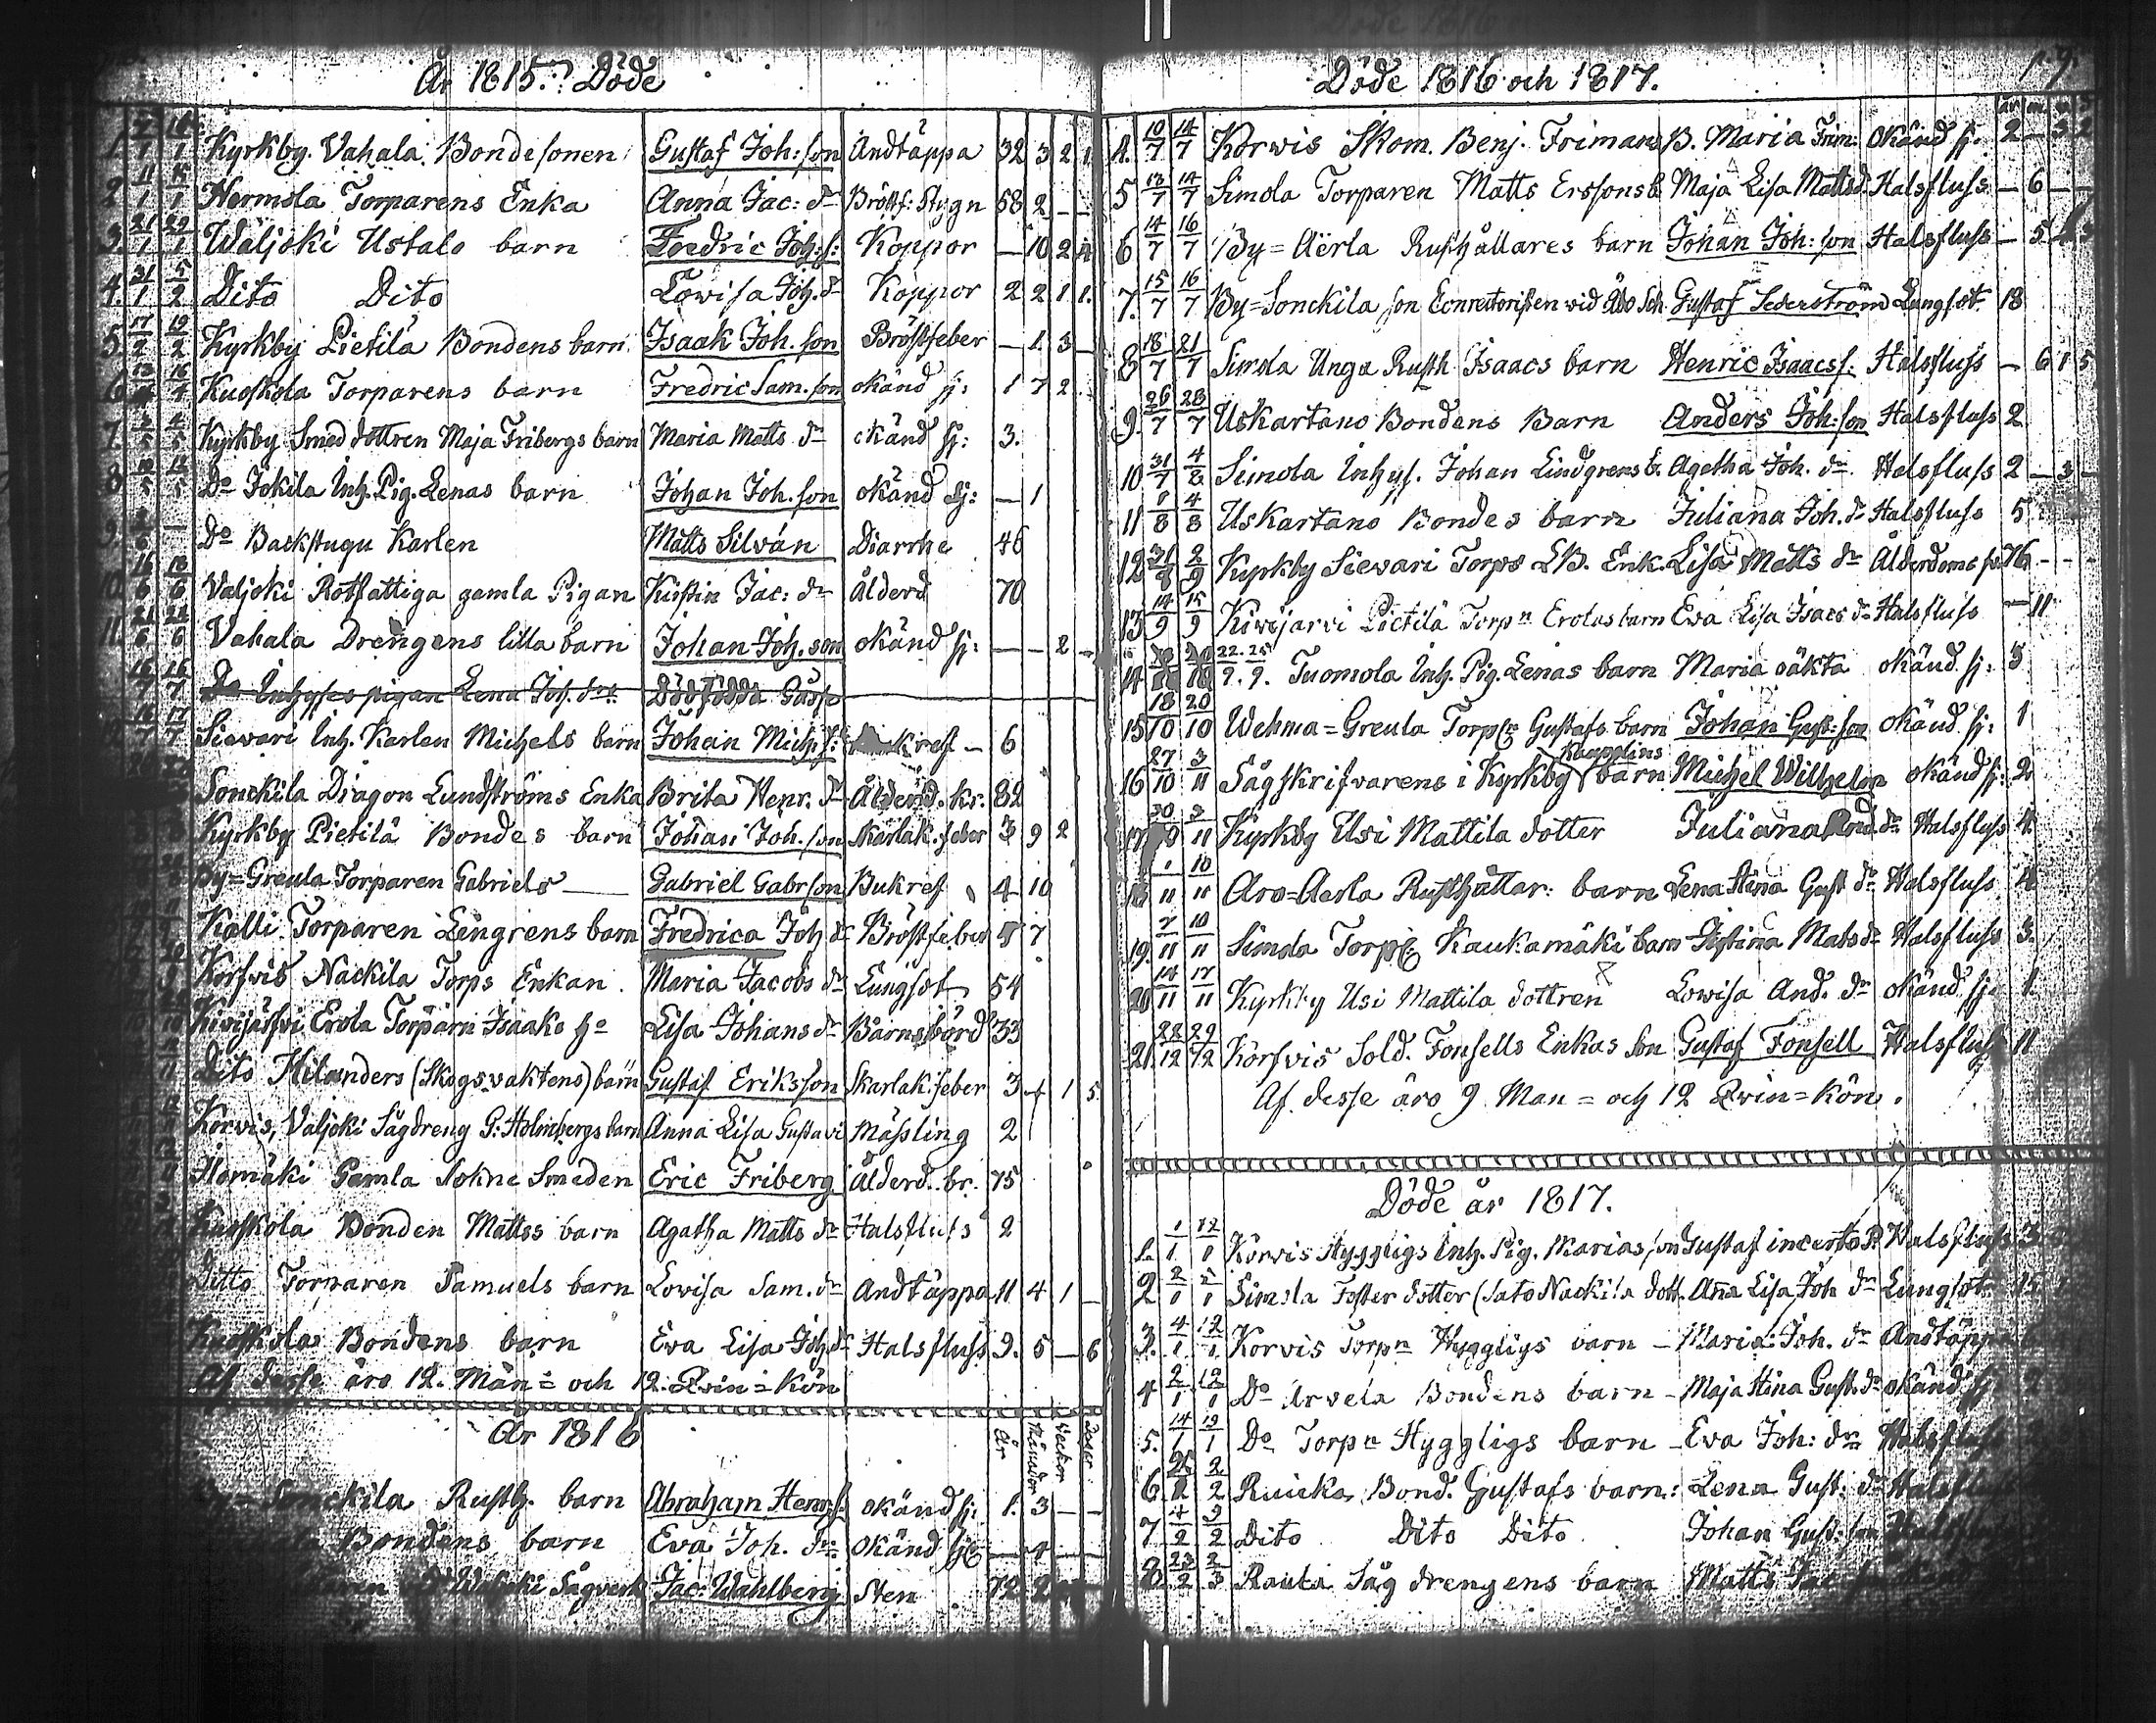 År 1815. Döde
1. 1 1 Kyrkby Vahala Bondesonen Gustaf Joh:son Andtäppa 32 3 2 1.
2 11/1 15/1 Hermola Torparens Enka Anna Jac: dr Bröstf: Stygn 58 2 – –
3. 21/1 29/1 Wäljoki Ustalo barn Fredric Joh:s: Koppor – 10 2
4. 31/1 5/2 Dito Dito Lowisa Joh. dr Koppor 2 2 1 1.
5 17/2 19/2 Kyrkby Pietilä Bondens barn Isaak Joh. son Bröstfeber – 1 3 –
6 Kuoskola Torparens barn Fredric Sam. son okänd sj: 1 7 2
7. 2/5 4/5 Kyrkby Smed dottren Maja Fribergs barn Maria Matts dr okänd sj: 3.
8 Do Jokila Inh. Pig. Lenas barn Johan Joh. son okänd sj: – 1
9. Do Backstugu Karlen Matts Silván Diarrhe 46
10. 16/6 18/6 Valjoki Rotfattiga gamla Pigan Kistin Jac: dr Ålderd 70
11. 21/6 24/6 Vahala Drengens lilla barn Johan Joh. son okänd sj: – – 2 –
16/7 16/7 Do Inhyses pigan Lena Joh. drs Dödfödda Gåsse
Siewari Inh. Karlen Michels barn Johan Mich. s: kref – 6
Sonckila Dragon Lundströms Enka Brita Henr. dr Ålderd. kr. 82
Kyrkby Pietilä Bondes barn Johan Joh. son Skarlak. feber 3 9 2
By=Greula Torparen Gabriels Gabriel Gabrson Bukref 4 10
Kalli Torparen Lengrens barn Fredrica Joh dr Bröstfeber 5 7
Korfvis Nackila Torps Enkan Maria Jacobs dr Lungsot 54
Kivijärfvi Erola Torparn Isaaks h. Lisa Johans dr Barnsbörd 33
Dito Hilanders (Skogsvaktens) barn Gustaf Eriksson Skarlak: feber 3 4 1 5
Korvis, Valjoki Sågdreng G: Holmbergs barn Anna Lisa Gustavi Mässling 2
Homäki Gamla Sokne Smeden Eric Friberg Ålderd. br. 75
Kuoskola Bonden Mattss barn Agatha Matts dr Halsfluss 2
Ditto Torparen Samuels barn Lowisa Sam. dr Andtäppa 11 4 1 –
Kuoskola Bondens barn Eva Lisa Joh dr Halsfluss 9. 5 – 6
Af desse äro 12. Man= och 12 Qvin=Kön
År 1816
År Månador Veckor Dagar
Sonckila Rusth. barn Abraham Henr:s: okänd sj: 1. 3 – –
Bondens barn Eva Joh. dr okänd sj: – 4 –
Sågverk Jac: Wahlberg Sten 72 2
Döde 1816 och 1817.
p. 9.
4. 10/7 14/7 Korwis Skom. Benj. Frimans B. Maria Frim: okänd sj. 2 – 3 2
5 13/7 14/7 Simola Torparen Matts Erssons b. Maja Lisa Matts d. Halsfluss – 6 – –
6 14/7 16/7 By=Aërla Rusthållares barn Johan Joh:son Halsfluss – 5
7. 15/7 16/7 By=Sonckila son Conrectoristen vid Åbo Sch. Gustaf Sederström Lungsot 18
8 18/7 21/7 Simola Unga Rusth Isaacs barn Henric Isaacs s. Halsfluss – 6 1 5
9. 26/7 28/7 Uskartano Bondens Barn Anders Joh:son Halsfluss 2
10 31/7 4/8 Simola Inhys. Johan Lindgrens b. Agatha Joh. dr Halsfluss 2 – 3 –
11 4/8 Uskartano Bondes barn Juliana Joh. dr Halsfluss 5
12 31/8 2/9 Kyrkby Siewari Torps Enk. Lisa Matts dr Ålderdoms 76 – – –
13 14/9 15/9 Kivijarvi Pietilä Torpn Erolas barn Eva Lisa Isacs dr Halsfluss – 11
14 22. 25 9. 9. Tuomola Inh. Pig. Lenas barn Maria oäkta okänd sj: 3
15 18/10 20/10 Wehma=Greula Torp Gustafs barn Johan Gust:son okänd sj: 1
16 27/10 3/11 Sågskrifvarens i Kyrkby Kaupplins barn Michel Wilhelm okänd sj: 2
17 30 3/11 Kyrkby Usi Mattila dotter Juliana dr Halsfluss 4
18 1/11 10/11 Aro=Aerla Rusthållar: barn Lena Stina Gust dr Halsfluss 4
19. 7/11 10/11 Simola Torp Kaukamäki barn Justina Mats dr Halsfluss 3.
20 14/11 17/11 Kyrkby Usi Mattila dottren Lowisa And. dr okänd sj. 1.
21. 28/12 29/12 Korfvis Sold. Fonsells Enkas son Gustaf Fonsell Halsfluss 11
Af desse äro 9 Man= och 12 Qvin=Kön.
Döde år 1817.
1. Korvis Hyggligs Inh. Pig. Marias son Gustaf incerto P. Halsfluss 3
2 Simola Foster dotter (Sato Nackila dott. Anna Lisa Joh dr Lungsot 15
3. 4/1 12/1 Korvis Torpn Hyggligs barn – Maria Joh. dr Andtäppa
4 2/1 12/1 Do Arvela Bondens barn – Maja Stina Gust. dr okänd sj
5. 14/1 19/1 Do Torpn Hyggligs barn – Eva Joh: dr Halsfluss
6 Bond. Gustafs barn: Lena Gust: dr
7 4/2 9/2 Dito Dito Dito Johan Gust: son
8 23/2 2/3 Rauta Såg drengens barn Matts